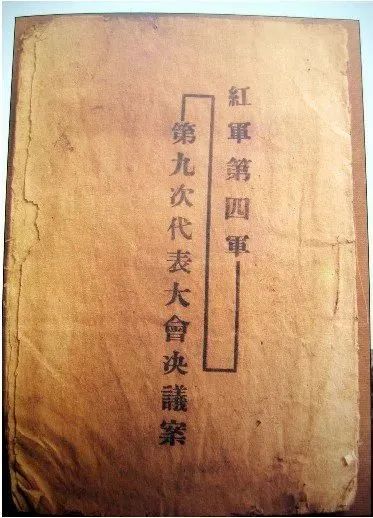 紅軍第四軍
第九次代表大會决議案